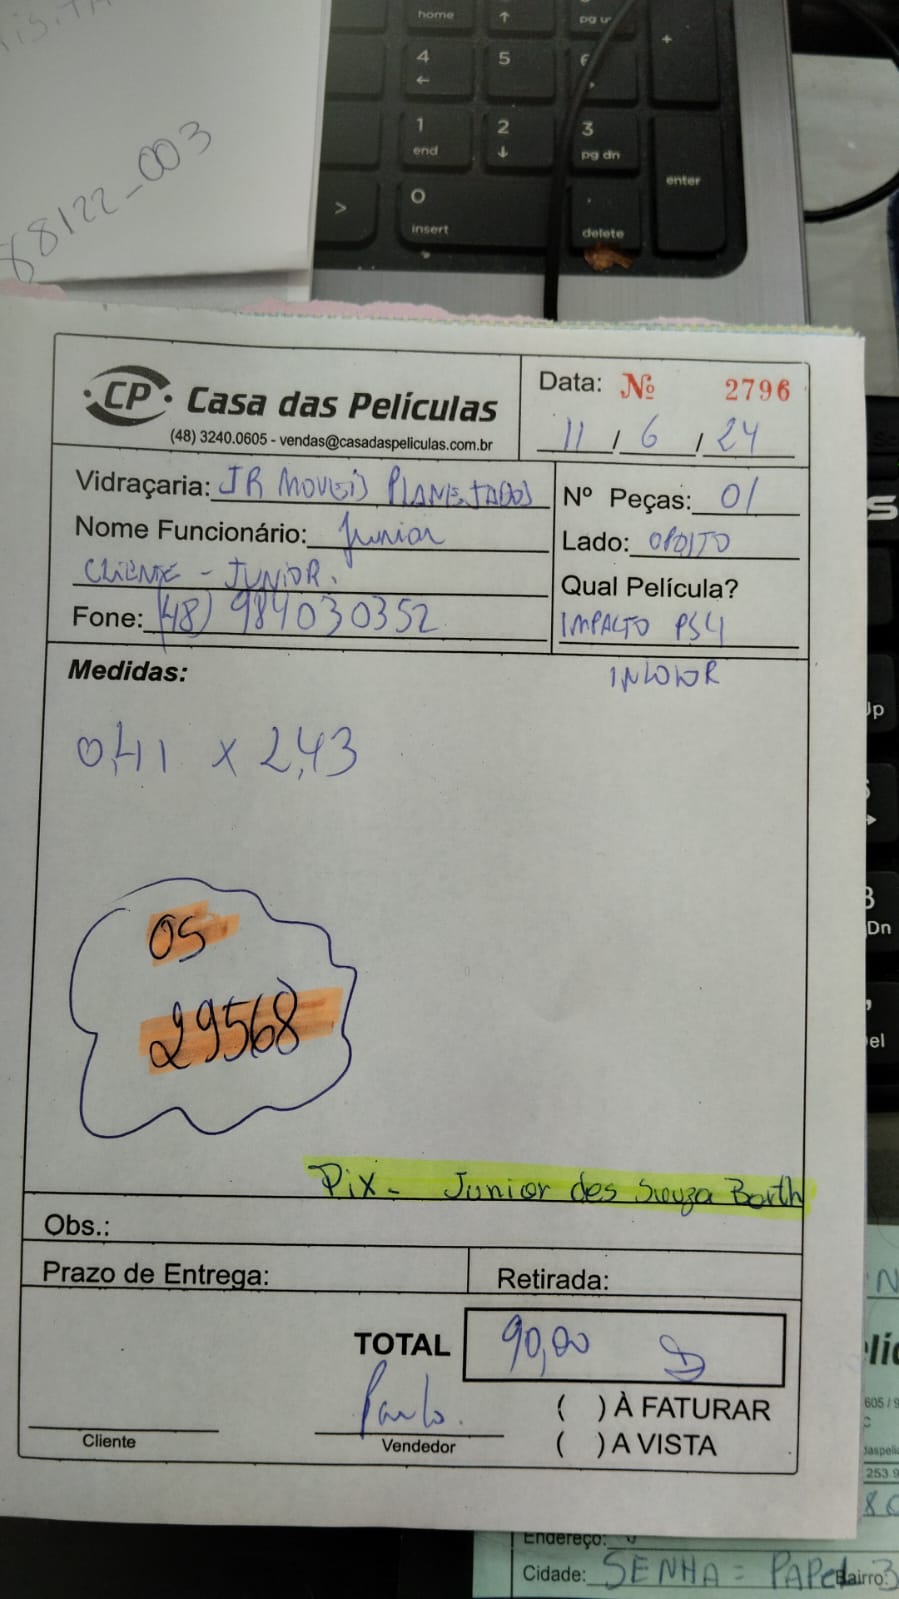 home
pg u
4
5
6
+
1
end
2
3
pg dn
enter
0
insert
delete
88122_003
CP Casa das Películas
(48) 3240.0605 - vendas@casadaspeliculas.com.br
Data: Nº 2796
11 / 6 / 24
Vidraçaria: JR MOVEIS PLANEJADOS
Nome Funcionário: Junior
CLIENTE - JUNIOR.
Fone: (48) 984030352
Nº Peças: 01
Lado: OPOSTO
Qual Película?
IMPACTO PS4
INCOLOR
Medidas:
0,41 x 2,43
OS
29568
Pix - Junior des Souza Barth
Obs.:
Prazo de Entrega:
Retirada:
TOTAL 90,00
Paulo.
Cliente
Vendedor
( ) À FATURAR
( ) A VISTA
Endereço:
Cidade: SENHA = PAPEL 3
Bairro: